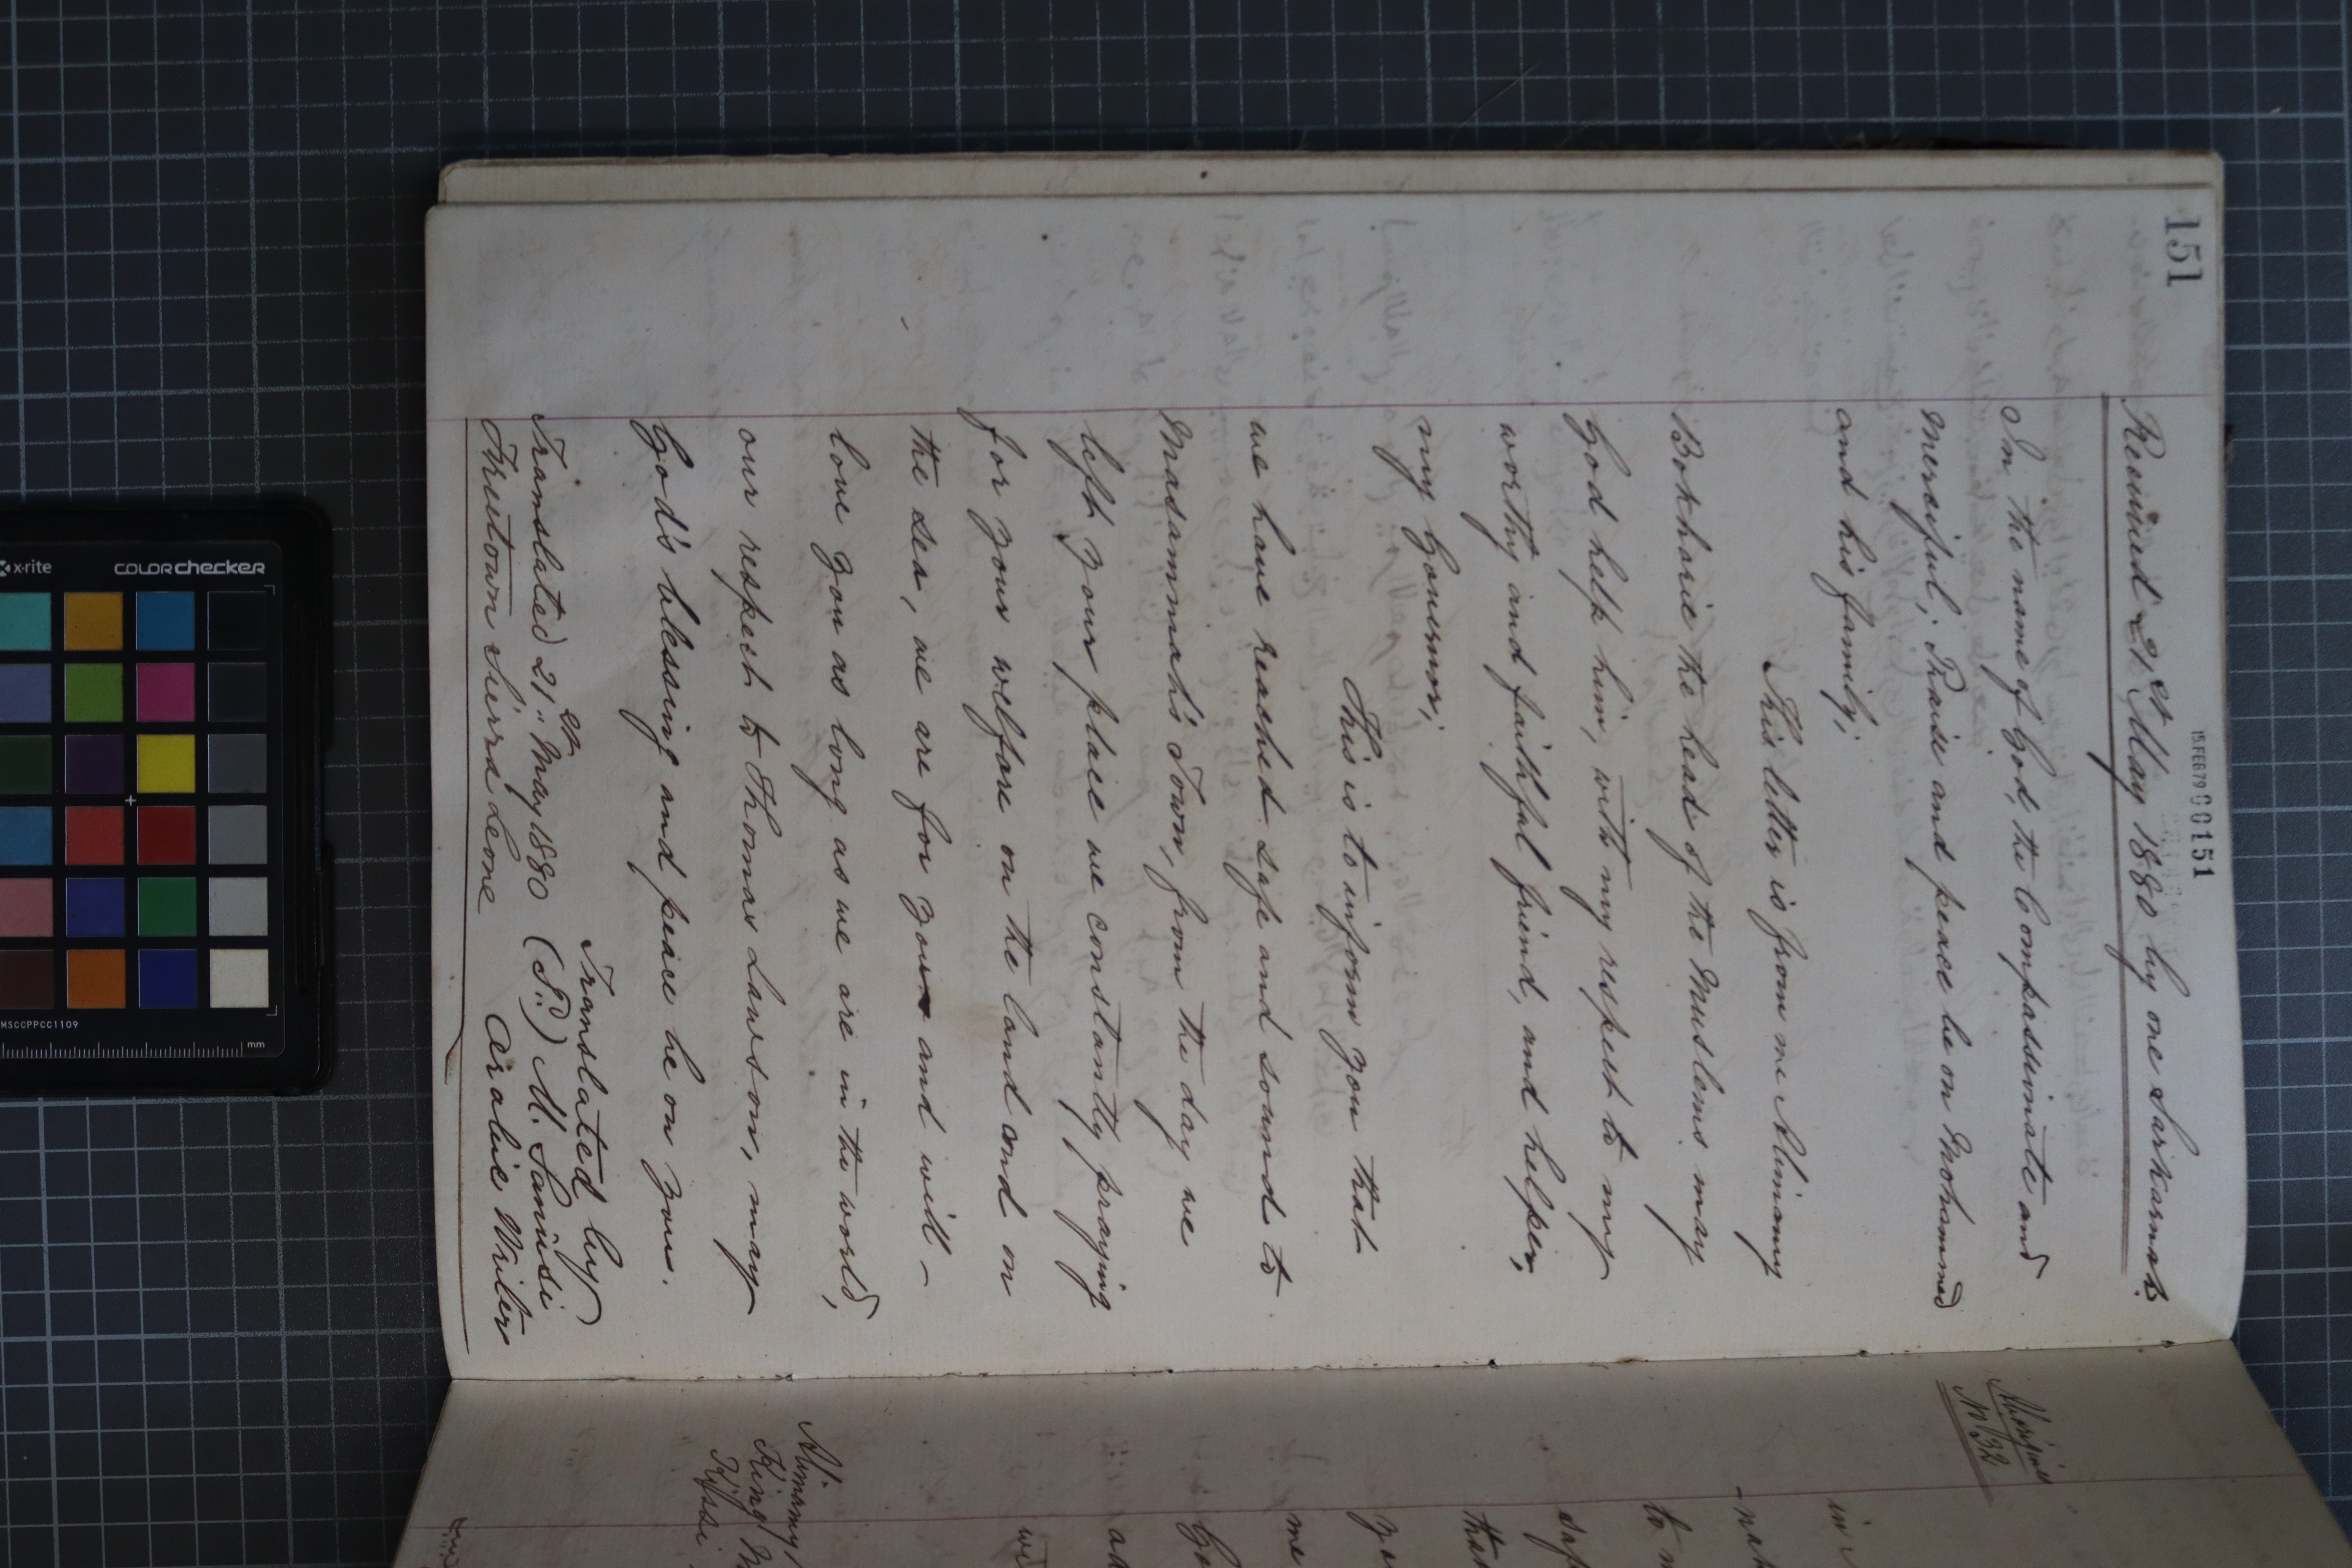 151
15.FEB79 000151
Received 21st May 1880 by one Sankarmah.
In the name of God, the Compassionate and
merciful; Praise and peace be on Mohammed
and his family;
This letter is from me Alimamy
Bokharie the head of the Muslems may
God help him, with my respect to my
worthy and faithful friend, and helper,
my Governor;
This is to inform you that
we have reached safe and sound to
Masammah's Town, from the day we
left your place we constantly praying
for your welfare on the land and on
the sea, we are for your and will -
love you as long as we are in the world,
our respect to Thomas Lawson, may
God's blessing and peace be on you.
Translated by
Translated 21st May 1880 (S.) M. Sanusi
Freetown Sierra Leone Arabic Writer
No 32
in
to
that
me
we
Alimamy
King
x-rite
COLORchecker
MSCCPPCC1109
mm